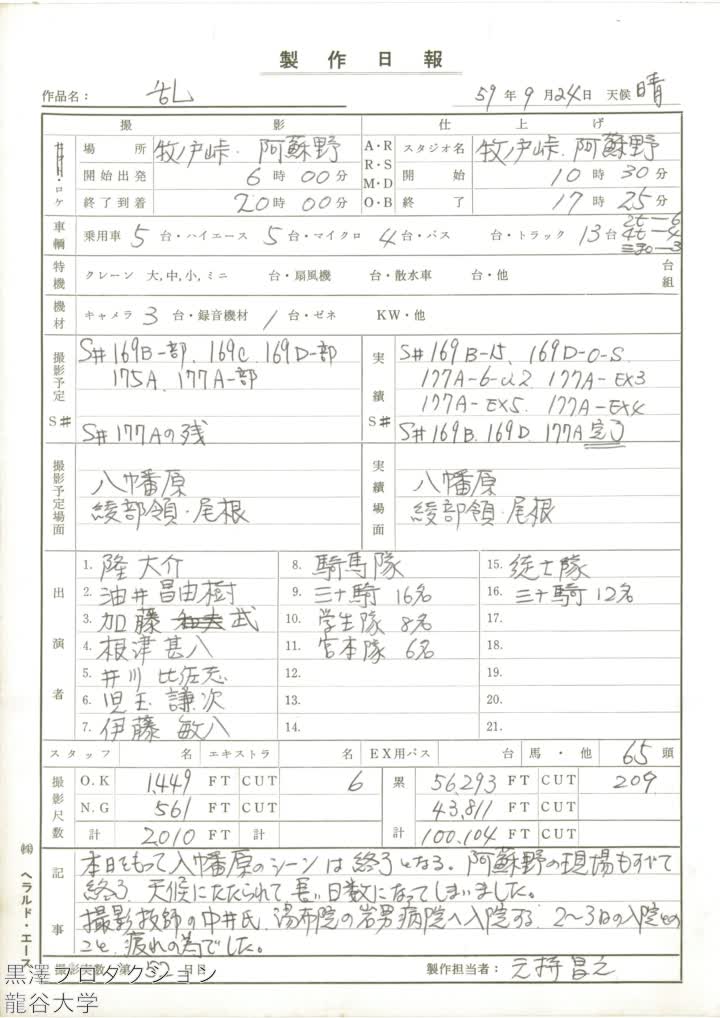 製作日報
作品名： 乱 59年9月24日 天候 晴
撮影 仕上げ
ロケ 場所 牧ノ戸峠．阿蘇野 A・R R・S M・D O・B スタジオ名 牧ノ戸峠．阿蘇野
開始出発 6時00分 開始 10時30分
終了到着 20時00分 終了 17時25分
車輌 乗用車 5台・ハイエース 5台・マイクロ 4台・バス 台・トラック 13台 2t-6 4t-4
特機 クレーン 大,中,小,ミニ 台・扇風機 台・散水車 台・他 台組
機材 キャメラ 3台・録音機材 1台・ゼネ KW・他
撮影予定 S# S#169B一部．169C．169D一部
175A．177A一部
S#177Aの残
実績 S# S#169B-15．169D-O-S．
177A-6-U2 177A-EX3
177A-EX5． 177A-EX4
S#169B．169D．177A 完了
撮影予定場面 八幡原
綾部領・尾根
実績場面 八幡原
綾部領・尾根
出演者
1. 隆 大介 8. 騎馬隊 15. 徒士隊
2. 油井昌由樹 9. 三十騎 16名 16. 三十騎 12名
3. 加藤 和夫 武 10. 学生隊 8名 17.
4. 根津甚八 11. 宮本隊 6名 18.
5. 井川比佐志 12. 19.
6. 児玉謙次 13. 20.
7. 伊藤敏八 14. 21.
スタッフ 名 エキストラ 名 EX用バス 台 馬・他 65頭
撮影尺数 O.K 1,449 FT CUT 6 累 56,293 FT CUT 209
N.G 561 FT 43,811 FT
計 2,010 FT 計 計 100,104 FT CUT
記事 本日をもって八幡原のシーンは終了となる．阿蘇野の現場もすべて
終了．天候にたたられて長い日数になってしまいました。
撮影技師の中井氏．湯布院の岩男病院へ入院する．2～3日の入院との
こと．疲れの為でした。
撮影実数 第 52 日目 製作担当者： 元持昌之
㈱ ヘラルド・エース
黒澤プロダクション
龍谷大学